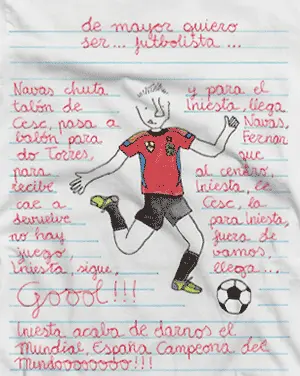 de mayor quiero
ser... futbolista...
Navas chuta y para el
talón de Iniesta, llega
Cesc, pasa a Navas,
balón para Fernan
do Torres, que
para al centro,
recibe Iniesta, le
cae a Cesc, la
devuelve para Iniesta,
no hay fuera de
juego, vamos,
Iniesta, sigue, llega...
Goool!!!
Iniesta acaba de darnos el
Mundial, España Campeona del
Mundooooooo!!!